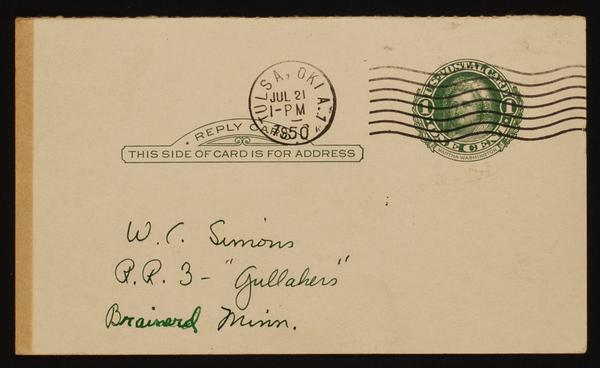 TULSA, OKLA. 1
JUL 21
1-PM
1950
U.S. POSTAL CARD
1 1
ONE CENT
MARTHA WASHINGTON
REPLY CARD
THIS SIDE OF CARD IS FOR ADDRESS
W. C. Simons
R.R. 3 - "Gullakers"
Brainerd Minn.